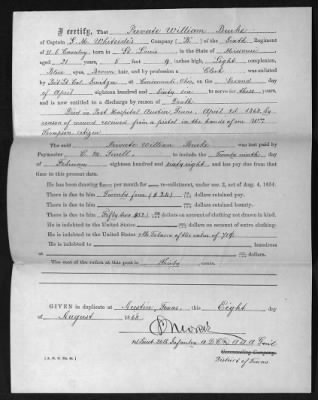 I certify, that Private William Burke
of Captain S. M. Whitside's Company ("B") of the Sixth Regiment
of U.S. Cavalry born in St. Louis in the State of Missouri
aged 21 years 5 feet 9 inches high Light complexion,
Blue eyes, Brown hair, and by profession a Clerk was enlisted
by at Cincinnati Ohio on the Second day
of April eighteen hundred and sixty six to serve three years,
and is now entitled to a discharge by reason of Death
Died in Post Hospital Austin Texas, April 2d 1868, by
reason of wound received from a pistol in the hands of one Wm.
Thompson citizen
The said Private William Burke was last paid by
Paymaster C. M. Terrell to include the Twenty ninth day of
February eighteen hundred and sixty eight, and has pay due from that
time to the present date.
He has been drawing dollars per month for re-enlistment, under sec. 2, act of Aug. 4, 1854.
There is due to him Twenty four ($24) dollars retained pay.
There is due to him dollars retained bounty.
There is due to him Fifty two $52) dollars on account of clothing not drawn in kind.
He is indebted to the United States dollars on account of extra clothing.
He is indebted to the United States for Tobacco of the value of 71¢
He is indebted to laundress
at dollars.
The cost of the ration at this post is Thirty cents.
GIVEN in duplicate at Austin, Texas, this Eight day
of August 1868
1st Lieut 26th Infantry
Commanding Company.
District of Texas.